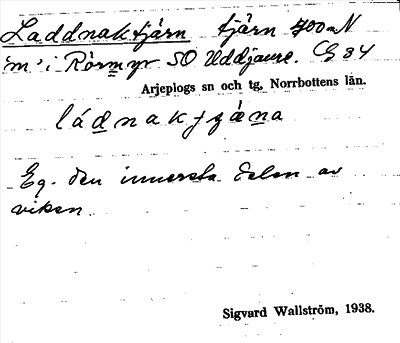 Laddnaktjärn tjärn 700 m N
"m" i Rörmyr SO Uddjaure. C 84
Arjeplogs sn och tg, Norrbottens län.
ládnakjæna
Eg. den innersta delen av
viken.
Sigvard Wallström, 1938.